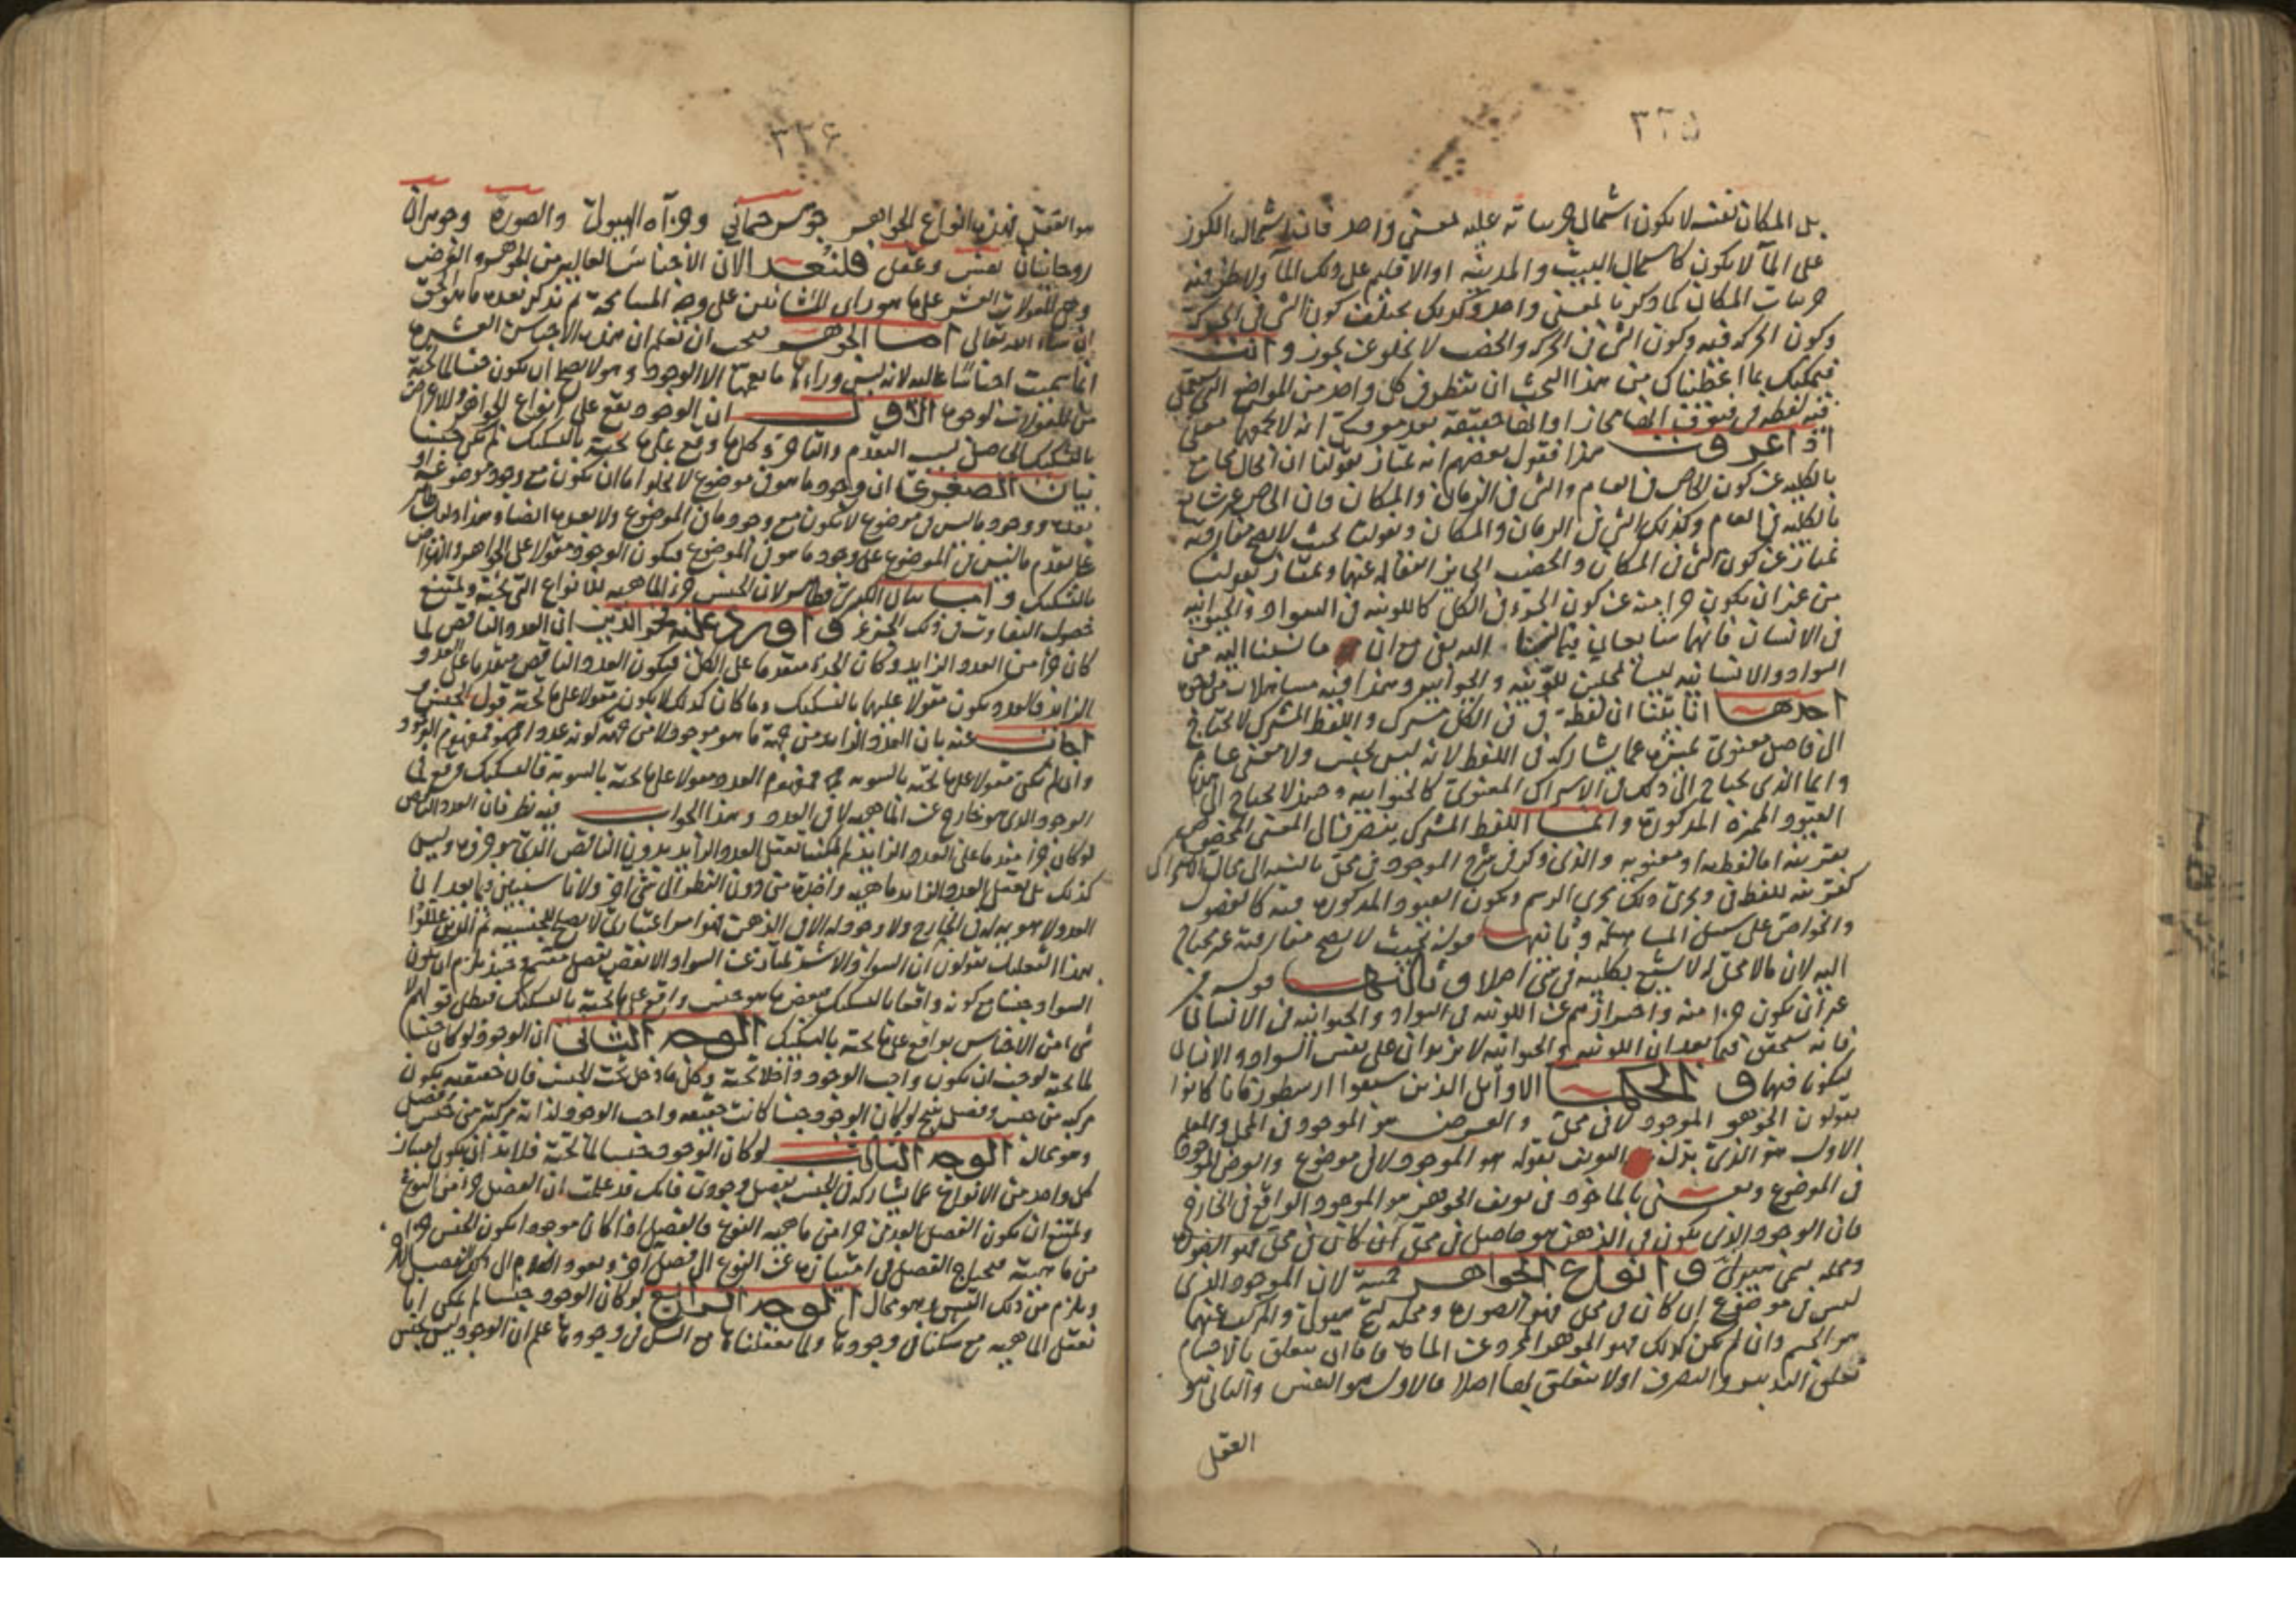 ٣٢٥
بل المكان نفسه لا يكون اشتمال جزئياته عليه بمعنى واحد فان اشتمال الكوز
على الماء لا يكون كاشتمال البيت والمدينة او الاقليم على ذلك الماء ولا ظرفية
جزئيات المكان كما ذكر بالمعنى واحد وكذلك يختلف كون الشي في الحركة
وكون الحركة فيه وكون الشي في الحركة والخصب لا يخلو عن تجوز وانت
فيمكنك بما اعطيناك من هذا البحث ان تنظر في كل واحد من المواضع التي يستعمل
فيه لفظة في فتعرف انها مجاز او انها حقيقة بعد معرفتك انه لا يجمعها معنى
اذا عرفت هذا فنقول بعضهم انه يمتاز بقولنا ان الحال مجامع
بالكلية عن كون الخاص في العام والشي في الزمان والمكان فان الخاص غير شايع
بالكلية في العام وكذلك الشي في الزمان والمكان وبقولنا بحيث لا يصح مفارقته
يمتاز عن كون الشي في المكان والخصب الجايز انتقاله عنها ويمتاز بقولنا
من غير ان يكون جزا منه عن كون الجزء في الكل كاللونية في السواد والحيوانية
في الانسان فانهما شايعان
السواد والانسانية ليسا محلين للونية والحيوانية وهذا فيه مساهلات من وجوه
احدها انا بينا ان لفظة في في الكل مشترك واللفظ المشترك لا يحتاج
الى فاصل معنوى يميزه عما يشاركه في اللفظ لانه ليس بجنس ولا معنى عام
وانما الذي يحتاج الى ذلك في الاشتراك المعنوى كالحيوانية وحينئذ لا يحتاج الى هذه
القيود المميزة المذكورة وانما اللفظ المشترك ينصرف الى المعنى المخصوص
بقرينة اما لفظية او معنوية والذي ذكر في شرح الموجود في محل بالنسبة الى محال الاشتراك
كقرينة للفظ في ويجرى ذلك مجرى الرسم ويكون القيود المذكورة فيه كالفصول
والخواص على سبيل المساهلة وثانيها قوله بحيث لا يصح مفارقته غير محتاج
اليه لان ماله محل لا يشيع بكليته في شي اصلا وثالثها قوله من
غير ان يكون جزءا منه واحترازهم عن اللونية في السواد والحيوانية في الانسان
فانه سنحقق فيما بعد ان اللونية والحيوانية لا يزيدان على نفس السواد والانسان
ليكونا فيها والحكما الاوايل الذين سبقوا ارسطو فانما كانوا
يقولون الجوهر الموجود لا في محل والعرض هو الموجود في المحل والمعلم
الاول هو الذي بدل التعريف بقوله هو الموجود لا في موضوع والعرض الموجود
في الموضوع ويعنى بالماخوذ في تعريف الجوهر هو الموجود الواقع في الخارج
فان الوجود الذي يكون في الذهن هو حاصل في محل ان كان في محل فهو الصورة
ومحله يسمى هيولى وانواع الجواهر خمسة لان الموجود الذي
ليس في موضوع ان كان في محل فهو الصورة ومحله يسمى هيولى والمركب عنهما
هو الجسم وان لم يكن كذلك فهو الجوهر المجرد عن المادة فاما ان يتعلق بالاجسام
تعلق التدبير والتصرف اولا يتعلق بها اصلا فالاول هو النفس والثاني هو
العقل
٣٢٦
هو العقل فهذه انواع الجواهر جوهر جسماني وجزآه الهيولى والصورة وجوهران
روحانيان نفس وعقل فلنعد الان الاجناس العالية من الجوهر والعرض
وهي المقولات العشر على ما هو راى المشائين على وجه المسامحة ثم نذكر بعده ما هو الحق
ان شاء الله تعالى اما الجوهر فيجب ان تعلم ان هذه الاجناس العشرة
انما سميت اجناسا عالية لانه ليس وراءها ما يعمها الا الوجود وهو لا يصلح ان يكون جنسا لما تحته
من المقولات لوجوه الاول ان الوجود يقع على انواع الجواهر والاعراض
بالتشكيك الحاصل بسبب التقدم والتاخر وكل ما وقع على ما تحته بالتشكيك لم يكن جنسا
بيان الصغرى ان وجود ما هو في موضوع لا يخلوا اما ان يكون مع وجود موضوعه او
بعده ووجود ما ليس في موضوع لا يكون مع وجود ما في الموضوع ولا بعده ايضا
على تقدم ما ليس في الموضوع على وجود ما هو في الموضوع فيكون الوجود مقولا على الجواهر والاعراض
بالتشكيك واما بيان الكبرى فظاهر لان الجنس جزء الماهية للانواع التي تحته ويمتنع
حصول التفاوت في ذلك الجزء واورد عليه نحو الذين ان العدد الناقص لما
كان جزا من العدد الزايد وكان الجزء متقدما على الكل فيكون العدد الناقص متقدما على العدد
الزايد فالعدد يكون مقولا عليهما بالتشكيك وما كان كذلك لا يكون مقولا على ما تحته قول الجنس و
اجاب عنه بان العدد الزايد من جهة ما هو موجود لا من جهة كونه عددا فمفهوم الوجود
وان لم يكن مقولا على ما تحته بالسوية فمفهوم العدد مقولا على ما تحته بالسوية فالتشكيك وقع في
الوجود الذي هو خارج عن الماهية لا في العدد وهذا الجواب فيه نظر فان العدد الناقص
لو كان جزا متقدما على العدد الزايد لم يمكننا تعقل العدد الزايد بدون الناقص الذي هو جزؤه وليس
كذلك بل نعقل العدد الزايد ماهية واحدة من دون النظر الى شي آخر ولانا سنبين فيما بعد ان
العدد لا هوية له في الخارج ولا وجود له الا في الذهن فهو امر اعتباري لا يصلح للجنسية ثم الذين عللوا
بهذا التعليل يقولون ان السواد الاشد يمتاز عن السواد الانقص بفصل مقسم وحينئذ يلزم ان يكون
السواد جنسا مع كونه واقعا بالتشكيك فبعض ما هو جنس واقع على ما تحته بالتشكيك فبطل قولهم لا
شي من الاجناس بواقع على ما تحته بالتشكيك الوجه الثاني ان الوجود لو كان جنسا
لما تحته لوجب ان يكون واجب الوجود داخلا تحته وكل ما دخل تحت الجنس فان حقيقته يكون
مركبة من جنس وفصل ينتج لو كان الوجود جنسا كانت حقيقة واجب الوجود لذاته مركبة من جنس وفصل
وهو محال الوجه الثالث لو كان الوجود جنسا لما تحته فلا بد ان يكون امتياز
كل واحد من الانواع عما يشاركه في الجنس بفصل وجودى فانك قد علمت ان الفصل جزء من النوع
ويمتنع ان يكون الفصل العدمي جزا من ماهية النوع فالفصل اذا كان موجودا يكون الجنس جزءا
من ماهيته فيحتاج الفصل في امتيازه عن النوع الى فصل آخر ويعود الكلام الى ذلك الفصل الآخر
ويلزم من ذلك التسلسل وهو محال الوجه الرابع لو كان الوجود جنسا لم يمكن انا
نعقل الماهية مع شكنا في وجودها ولما تعقلناها مع الشك في وجودها علم ان الوجود ليس بجنس